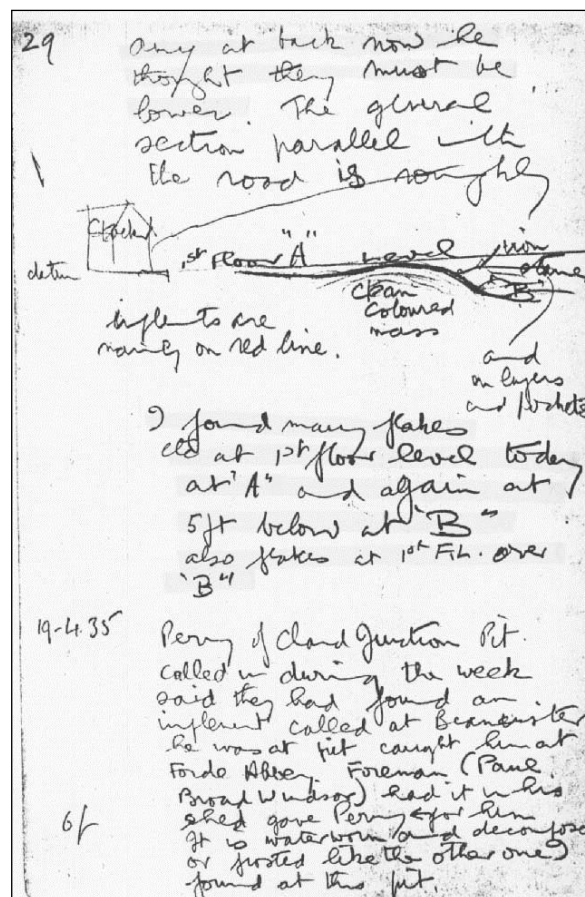 29
any at back now he
thought they must be
lower. The general
section parallel with
the road is roughly
1st Floor "A" Level
iron
stone
"B"
clean
coloured
mass
implents are
mainly on red line.
and
in layers
and pockets
I found many flakes
etc at 1st floor level today
at "A" and again at
5ft below at "B"
also flakes at 1st F.L. over
"B"
19-4.35
Perry of Chard Junction Pit.
called in during the week
said they had found an
implement called at Beaminster
he was at pit caught him at
Forde Abbey. Foreman (Paul
Broad Windsor) had it in his
shed gave Perry for him
6/
It is waterworn and decomposed
or frosted like the other one I
found at this pit.